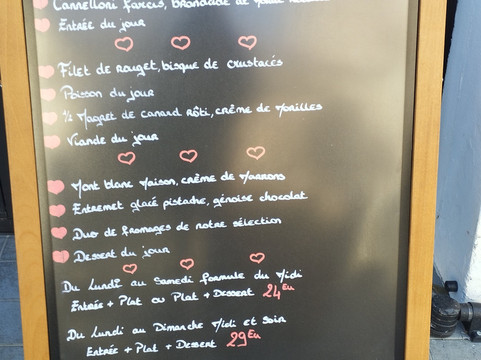 Cannelloni farcis, brandade de
Entrée du jour
Filet de rouget, bisque de crustacés
Poisson du jour
½ Magret de canard rôti, crème de Morilles
Viande du jour
Mont blanc Maison, crème de Marrons
Entremet glacé pistache, génoise chocolat
Duo de fromages de notre sélection
Dessert du jour
Du Lundi au Samedi formule du Midi
Entrée + Plat ou Plat + Dessert 24 Eu
Du Lundi au Dimanche Midi et soir
Entrée + Plat + Dessert 29 Eu